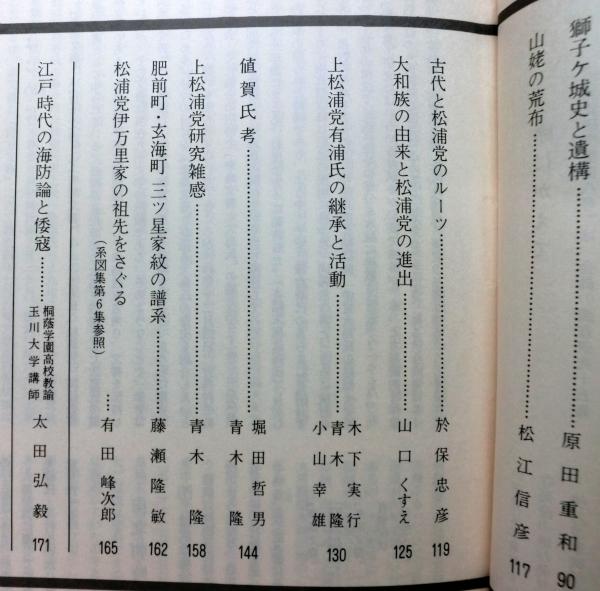 獅子ケ城史と遺構………………原田重和 90
山姥の荒布………………松江信彦 117
古代と松浦党のルーツ………………於保忠彦 119
大和族の由来と松浦党の進出………………山口くすえ 125
上松浦党有浦氏の継承と活動………………木下実行
青木隆
小山幸雄 130
値賀氏考………………堀田哲男
青木隆 144
上松浦党研究雑感………………青木隆 158
肥前町・玄海町 三ツ星家紋の譜系………………藤瀬隆敏 162
松浦党伊万里家の祖先をさぐる
(系図集第6集参照)
…有田峰次郎 165
江戸時代の海防論と倭寇………桐蔭学園高校教諭
玉川大学講師
太田弘毅 171